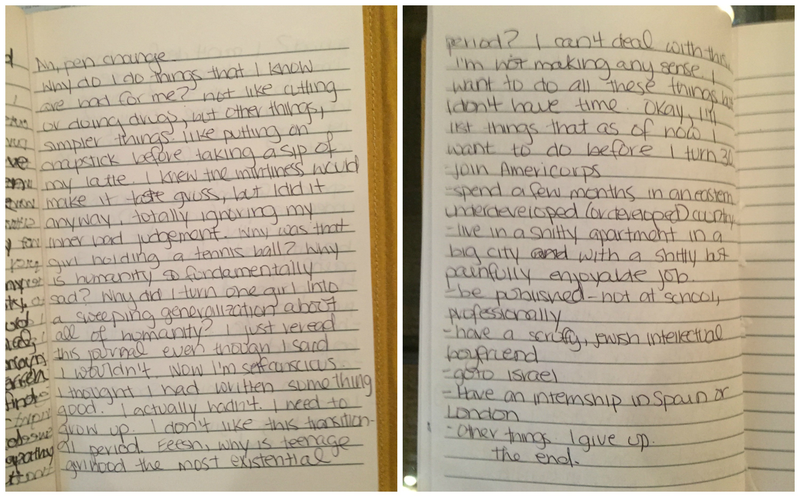 Ah, pen change.
Why do I do things that I know
are bad for me? not like cutting
or doing drugs, but other things,
simpler things. like putting on
chapstick before taking a sip of
my latte I knew the mintiness would
make it taste gross, but I did it
anyway totally ignoring my
inner bad judgement. Why was that
girl holding a tennis ball? Why
is humanity so fundamentally
sad? Why did I turn one girl into
a sweeping generalization about
all of humanity? I just reread
this journal even though I said
I wouldn't. Now I'm selfconscious.
I thought I had written something
good. I actually hadn't. I need to
grow up. I don't like this transition-
al period. Eeesh, why is teenage
girlhood the most existential
period? I can't deal with this
I'm not making any sense. I
want to do all these things but
I don't have time. Okay, I'll
list things that as of now I
want to do before I turn 30
-join Americorps
-spend a few months in an eastern
underdeveloped (or developed) country
-live in a shitty apartment in a
big city and with a shitty but
painfully enjoyable job.
-be published - not at school,
professionally
-have a scruffy, jewish intellectual
boyfriend
-go to Israel
-Have an internship in Spain or
London
-Other things I give up.
the end.